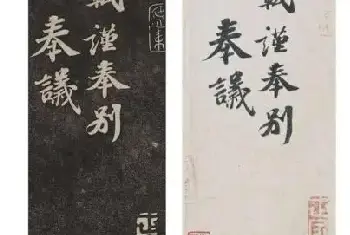 謹奉別
奉議
謹奉別
奉議